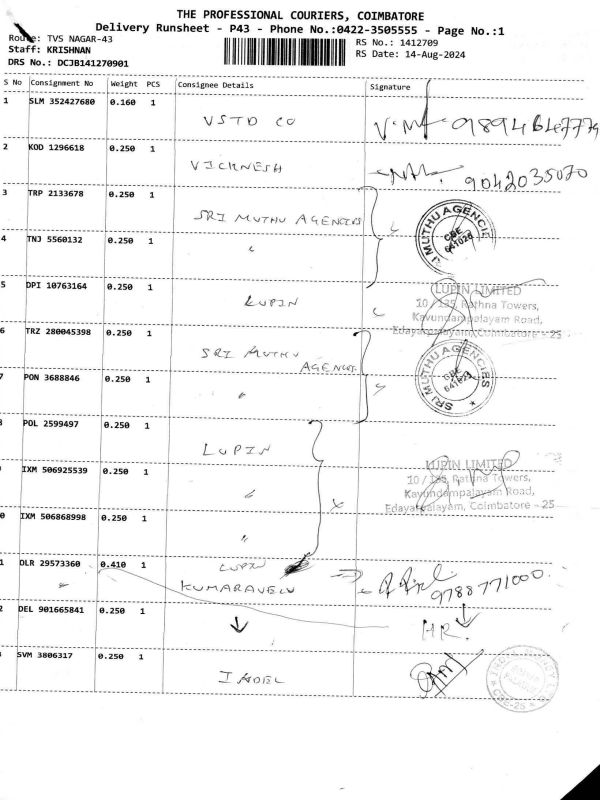 THE PROFESSIONAL COURIERS, COIMBATORE
Delivery Runsheet - P43 - Phone No.:0422-3505555 - Page No.:1
Route: TVS NAGAR-43
Staff: KRISHNAN
DRS No.: DCJB141270901
RS No.: 1412709
RS Date: 14-Aug-2024
S No Consignment No Weight PCS Consignee Details Signature
1 SLM 352427680 0.160 1
VSTD CO
2 KOD 1296618 0.250 1
VICKNESH 9042035070
3 TRP 2133678 0.250 1
SRI MUTHU AGENCIES
MUTHU AGENCIES
CBE
641025
4 TNJ 5560132 0.250 1
"
5 DPI 10763164 0.250 1
LUPIN
LUPIN LIMITED
10 / 135, Rathna Towers,
Kavundampalayam Road,
Edayarpalayam, Coimbatore - 25
6 TRZ 280045398 0.250 1
SRI MUTHU
AGENCIES
SRI MUTHU AGENCIES
CBE
7 PON 3688846 0.250 1
"
POL 2599497 0.250 1
LUPIN
LUPIN LIMITED
10 / 135, Rathna Towers,
Kavundampalayam Road,
Edayarpalayam, Coimbatore - 25
IXM 506925539 0.250 1
"
0 IXM 506868998 0.250 1
"
1 DLR 29573360 0.410 1
LUPIN
KUMARAVELU
9788771000
2 DEL 901665841 0.250 1
HR.
SVM 3806317 0.250 1
INDEL
CBE-25